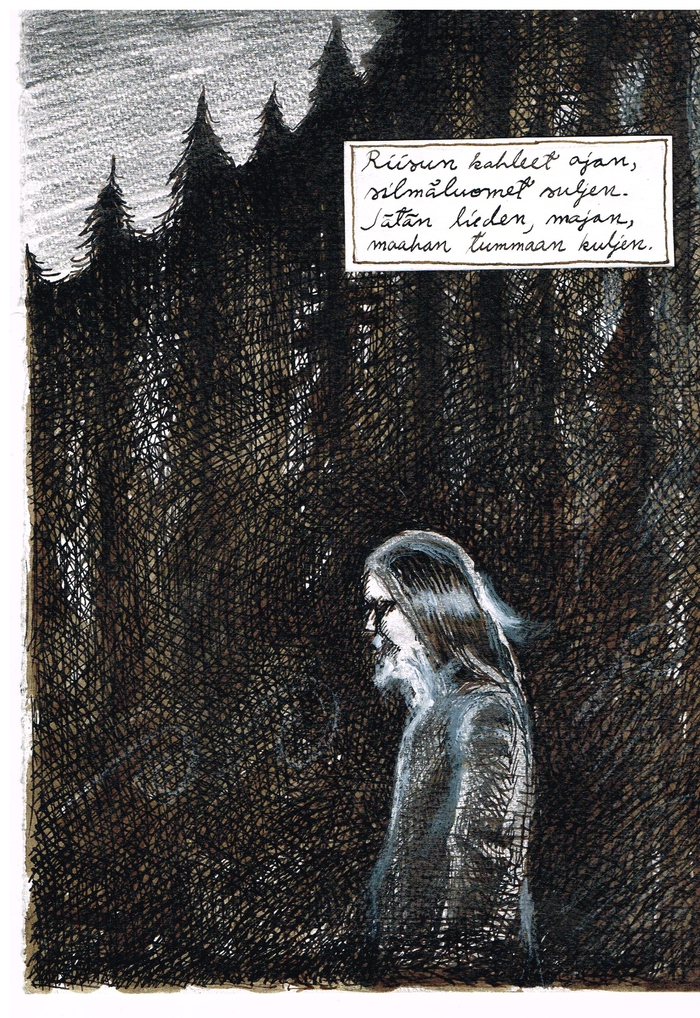 Riisun kahleet ajan,
silmäluomet suljen.
Jätän lieden, majan,
maahan tummaan kuljen.